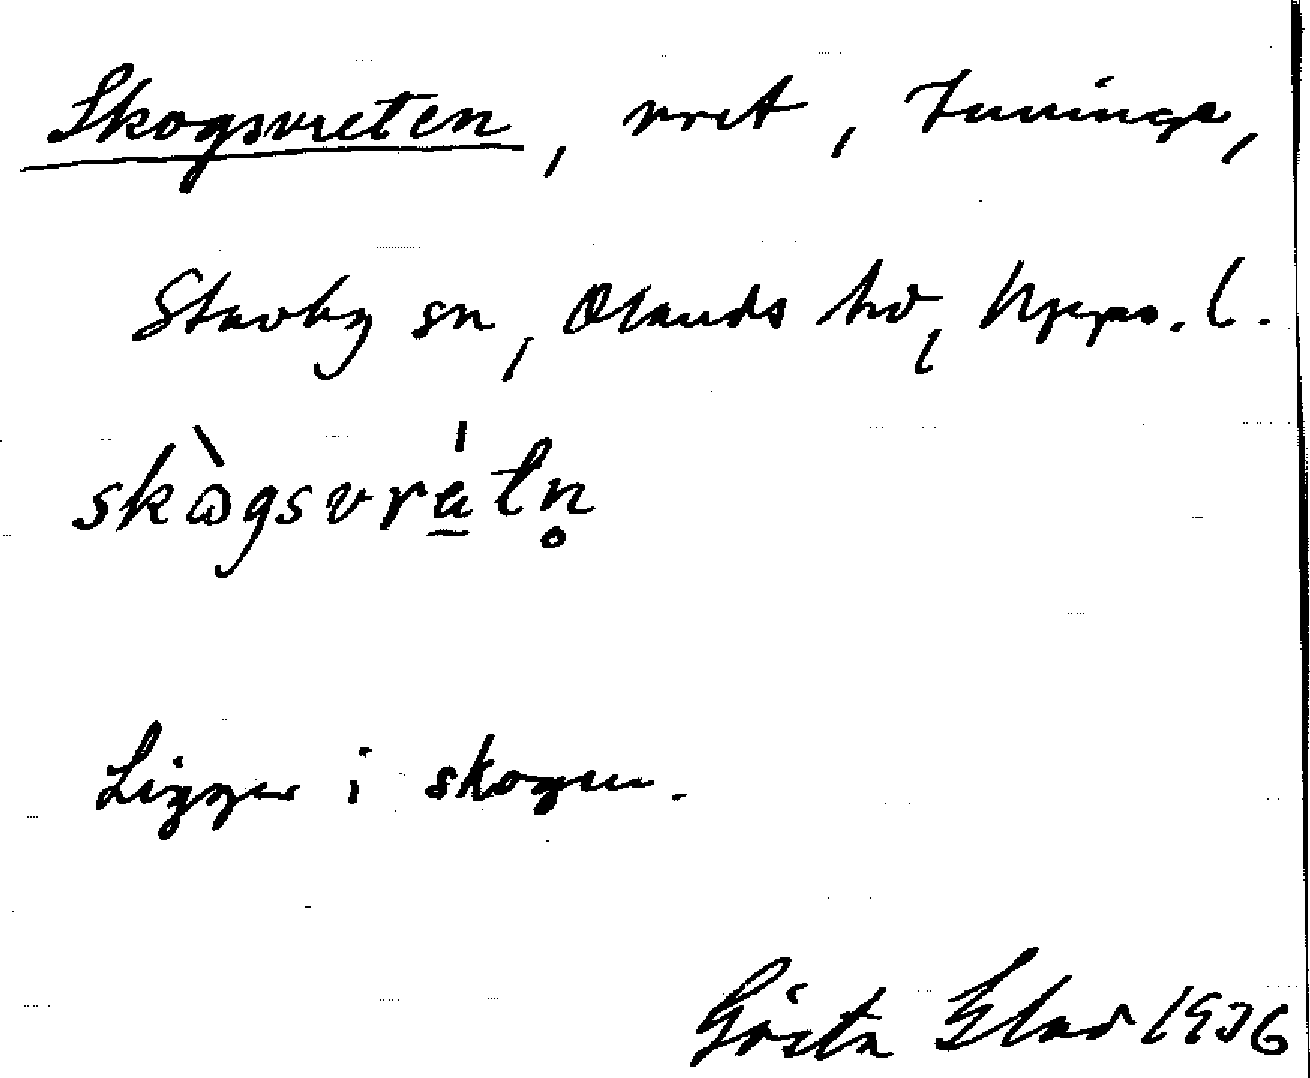 Skogsvreten, vret, Tuvinge,
Stavby sn, Olands hd, Upps. l.
skɷ̀gsvrá̲tn̥
Ligger i skogen.
Gösta Elad 1936